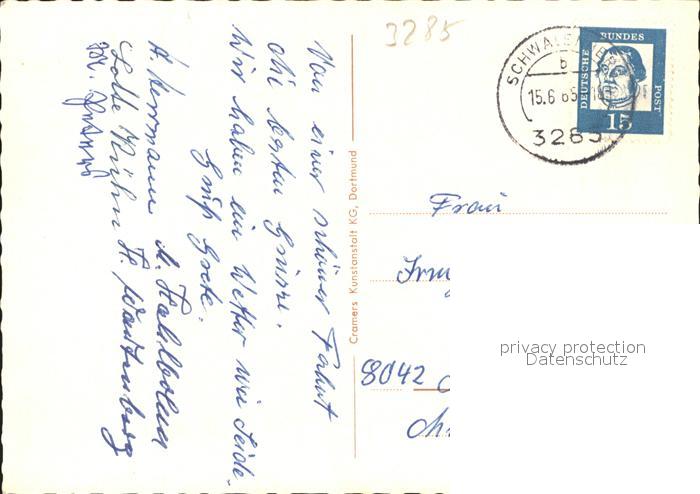 3285
SCHWALEN
b
15.6.65
3285
DEUTSCHE
BUNDES
POST
15
Von einer schönen Fahrt
die besten Grüsse.
Wir haben ein Wetter wie Seide.
Gruß Grete.
A. Herrmann
Lotte Kühn H. Wartenberg
Cramers Kunstanstalt KG, Dortmund
Frau
Irm
8042
privacy protection
Datenschutz